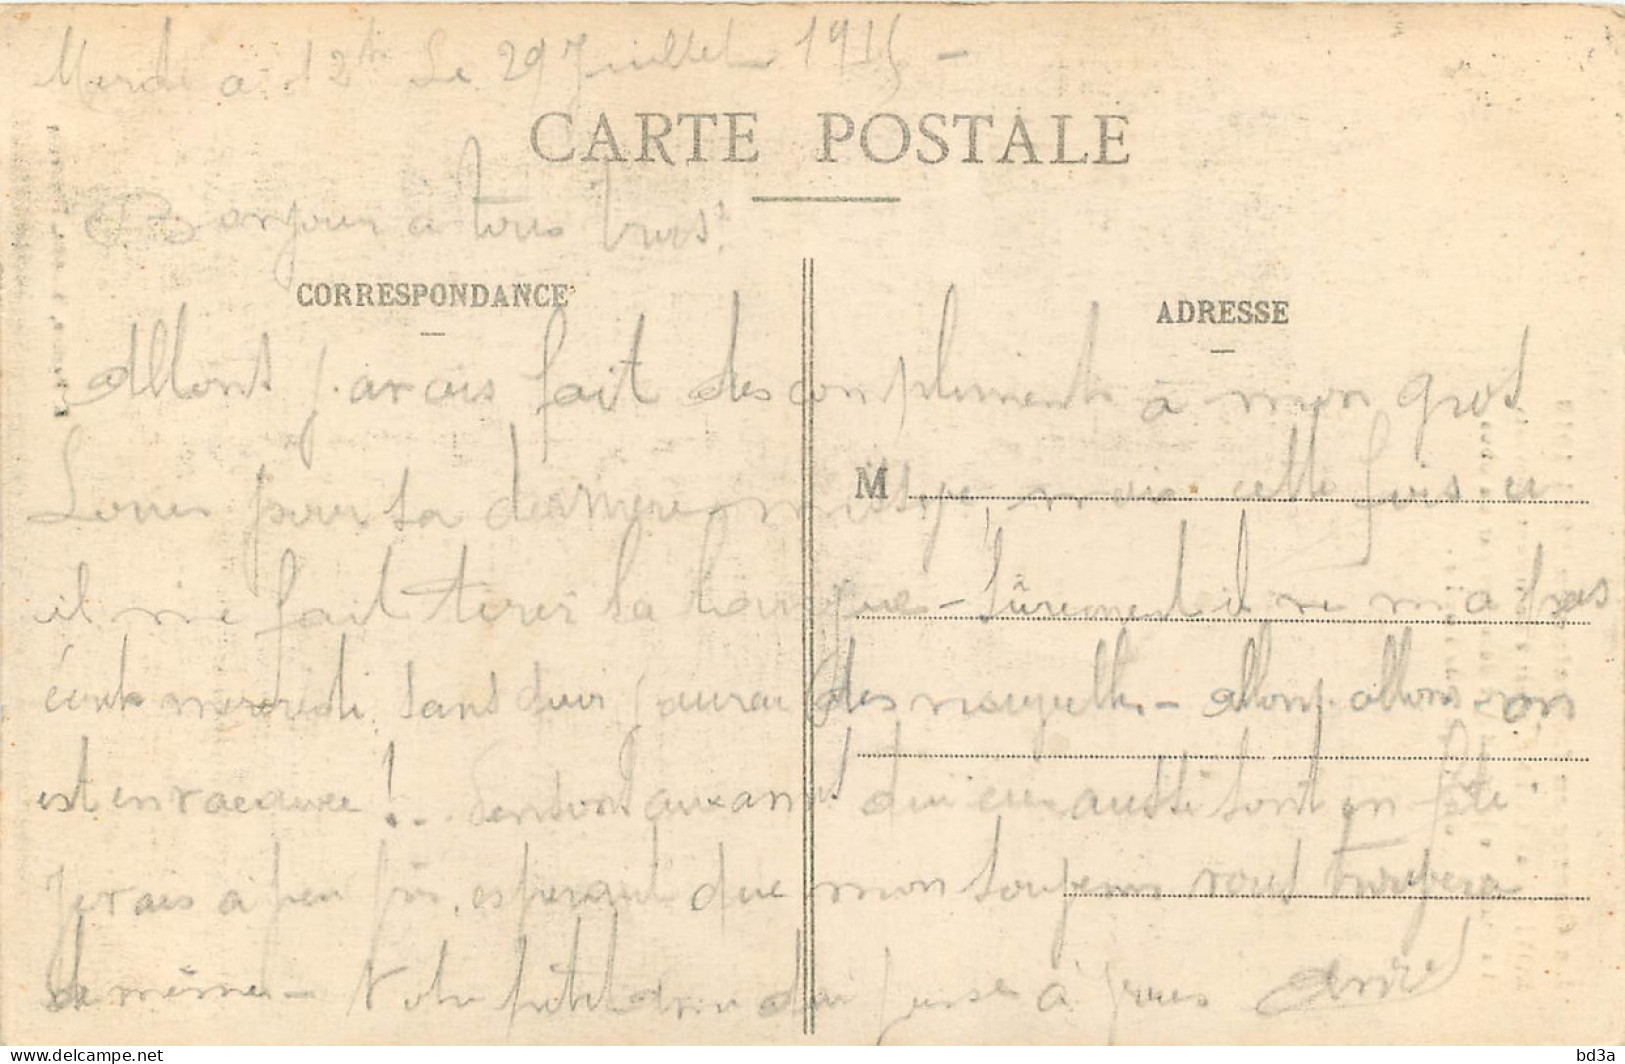 a 12h Le 29 Juillet 1915 -
CARTE POSTALE
Bonjour a tous trois!
CORRESPONDANCE
ADRESSE
Allons j'avais fait des compliments à mon gros
Louis pour sa derniere missive, mais cette fois ci
M
il me fait tirer la langue - Sûrement il ne m'a pas
écrit mercredi, sans quoi j'aurai des nouvelles - Allons, allons, on
est en vacance ! .. Ses aussi sont en fête
Je vais à peu près, esperant que mon vous trouvera
de même - Votre petit ami qui pense à vous André
bd3a